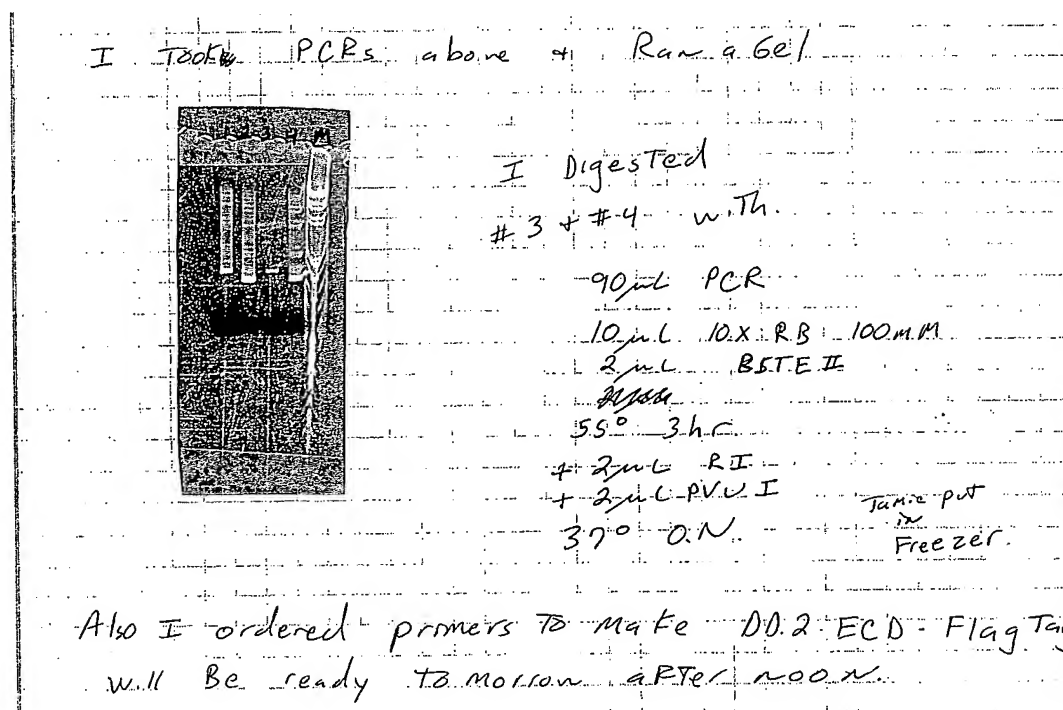 I Took PCRs above + Ran a Gel
1 2 3 4 M
I Digested
#3 + #4 with.
90 µL PCR
10 µL 10X RB 100 mM
2 µL BSTE II
55° 3hr
+ 2 µL RI
+ 2 µL PVU I
37° O.N.
Jamie put
in
Freezer.
Also I ordered primers To Make DD.2 ECD - Flag Tag
will Be ready tomorrow afTer noon.